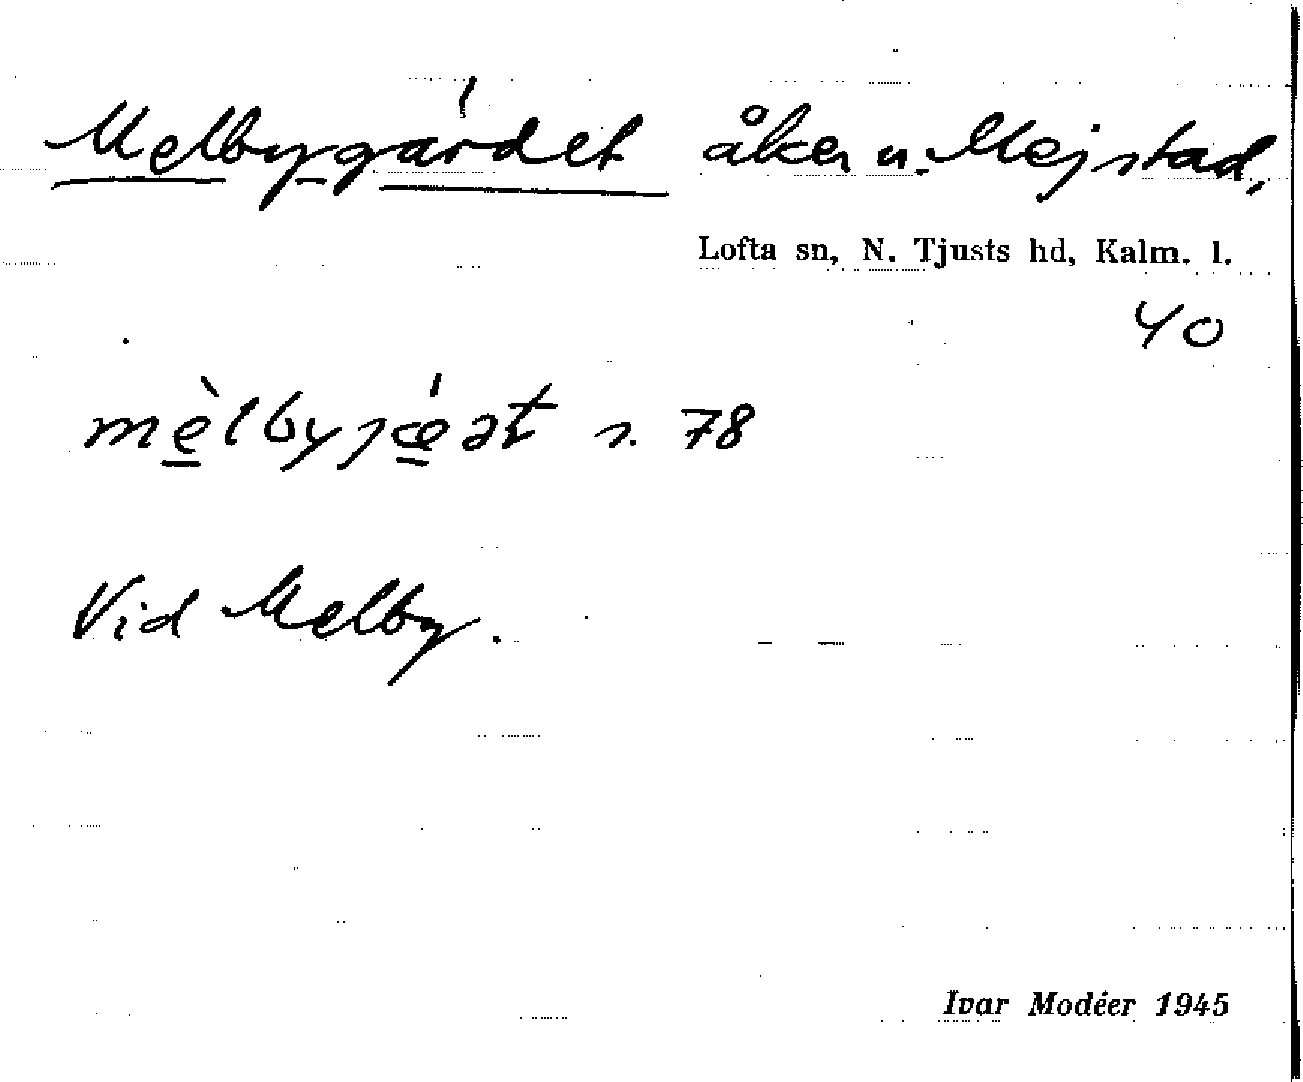 Melbygärdet åker u. Mejstad,
Lofta sn, N. Tjusts hd, Kalm. l.
40
mèlbyjǽət s. 78
Vid Melby.
Ivar Modéer 1945